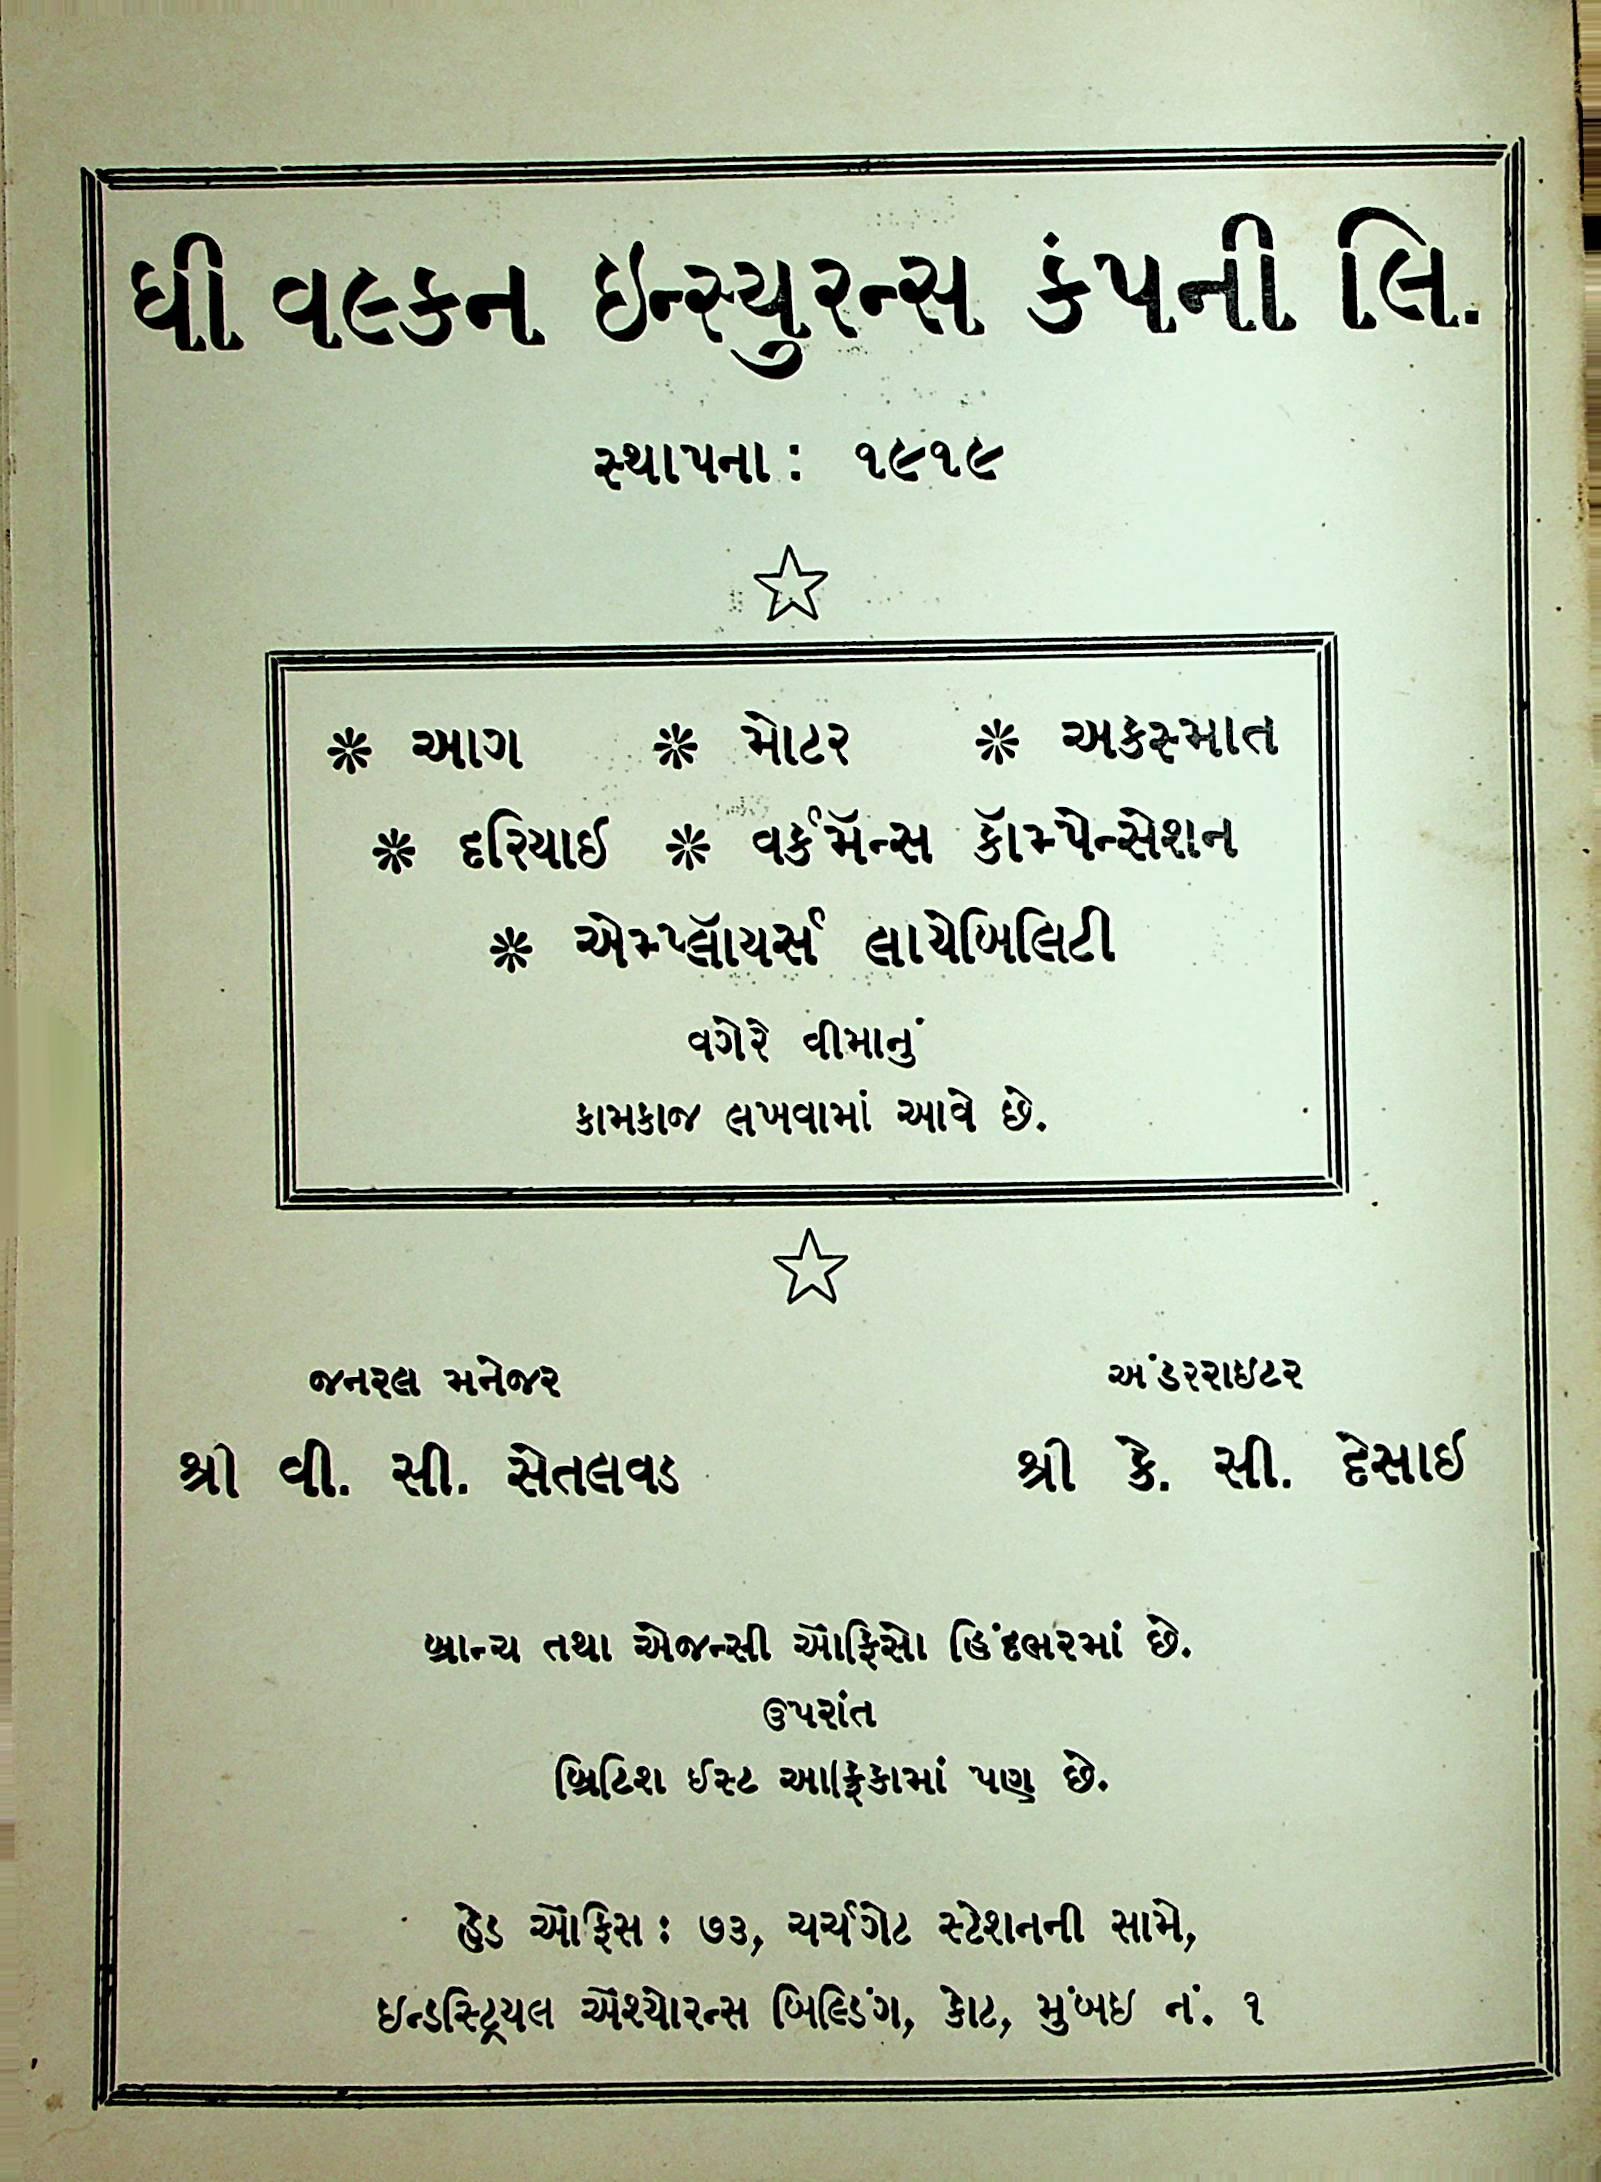 ધી વલ્કન ઇન્સ્યુરન્સ કંપની લિ.
સ્થાપના : ૧૯૧૯
* આગ * મોટર * અકસ્માત
* દરિયાઈ * વર્કમૅન્સ કૉમ્પેન્સેશન
* એમ્પ્લૉયર્સ લાયેબિલિટી
વગેરે વીમાનું
કામકાજ લખવામાં આવે છે.
જનરલ મનેજર અંડરરાઇટર
શ્રી વી. સી. સેતલવડ શ્રી કે. સી. દેસાઈ
બ્રાન્ચ તથા એજન્સી ઑફિસો હિંદભરમાં છે.
ઉપરાંત
બ્રિટિશ ઈસ્ટ આફ્રિકામાં પણ છે.
હેડ ઑફિસ : ૭૩, ચર્ચગેટ સ્ટેશનની સામે,
ઇન્ડસ્ટ્રિયલ ઍશ્યોરન્સ બિલ્ડિંગ, કોટ, મુંબઇ નં. ૧